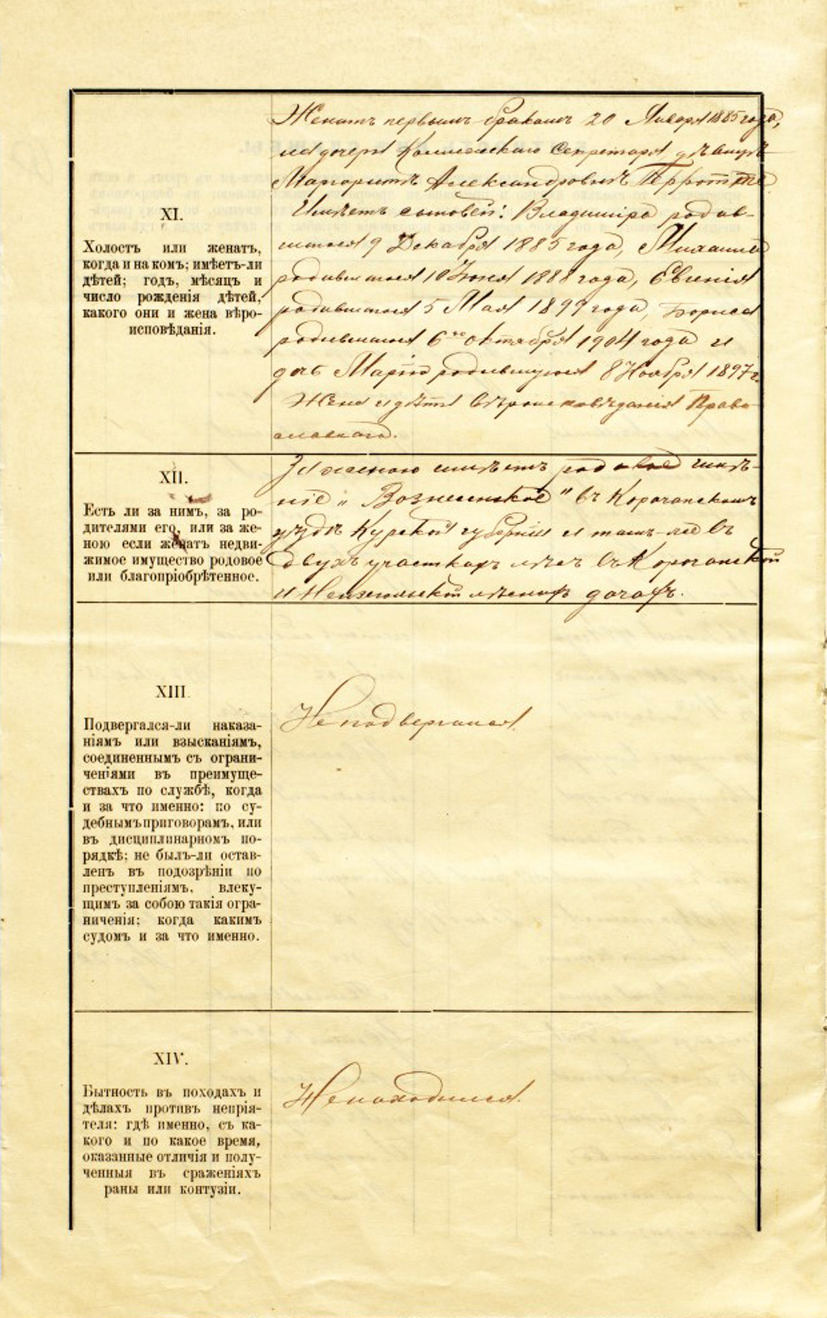 XI.
Холостъ или женатъ,
когда и на комъ; имѣетъ-ли
дѣтей; годъ, мѣсяцъ и
число рожденія дѣтей,
какого они и жена вѣро-
исповѣданія.
Женатъ первымъ бракомъ 20 Января 1885 года,
на дочери Коллежскаго Секретаря дѣвицѣ
Маргаритѣ Александровнѣ
Имѣетъ сыновей: Владиміра родив-
шагося 9 Декабря 1885 года, Михаила
родившагося 10 Іюня 1888 года, Евгенія
родившагося 5 Мая 1899 года, Бориса
родившагося 6го октября 1904 года и
дочь Марію родившуюся 8 Ноября 1897 г.
Жена и дѣти вѣроисповѣданія Право
славнаго.
XII.
Есть ли за нимъ, за ро-
дителями его, или за же-
ною если женатъ недви-
жимое имущество родовое
или благопріобрѣтенное.
За женою имѣетъ родовое имѣ-
ніе "Вознесенское" въ Корочанскомъ
уѣздѣ Курской губерніи и тамъ-же въ
двухъ участкахъ лѣсъ въ Корочанской
и лѣсныхъ дачахъ.
XIII
Подвергался-ли наказа-
ніямъ или взысканіямъ,
соединеннымъ съ ограни-
ченіями въ преимуще-
ствахъ по службѣ, когда
и за что именно: по су-
дебнымъ приговорамъ, или
въ дисциплинарномъ по-
рядкѣ; не былъ-ли остав-
ленъ въ подозрѣніи по
преступленіямъ, влеку-
щимъ за собою такія огра-
ниченія; когда какимъ
судомъ и за что именно.
Не подвергался.
XIV.
Бытность въ походахъ и
дѣлахъ противъ непрія-
теля: гдѣ именно, съ ка-
кого и по какое время,
оказанные отличія и полу-
ченныя въ сраженіяхъ
раны или контузіи.
Не находился.